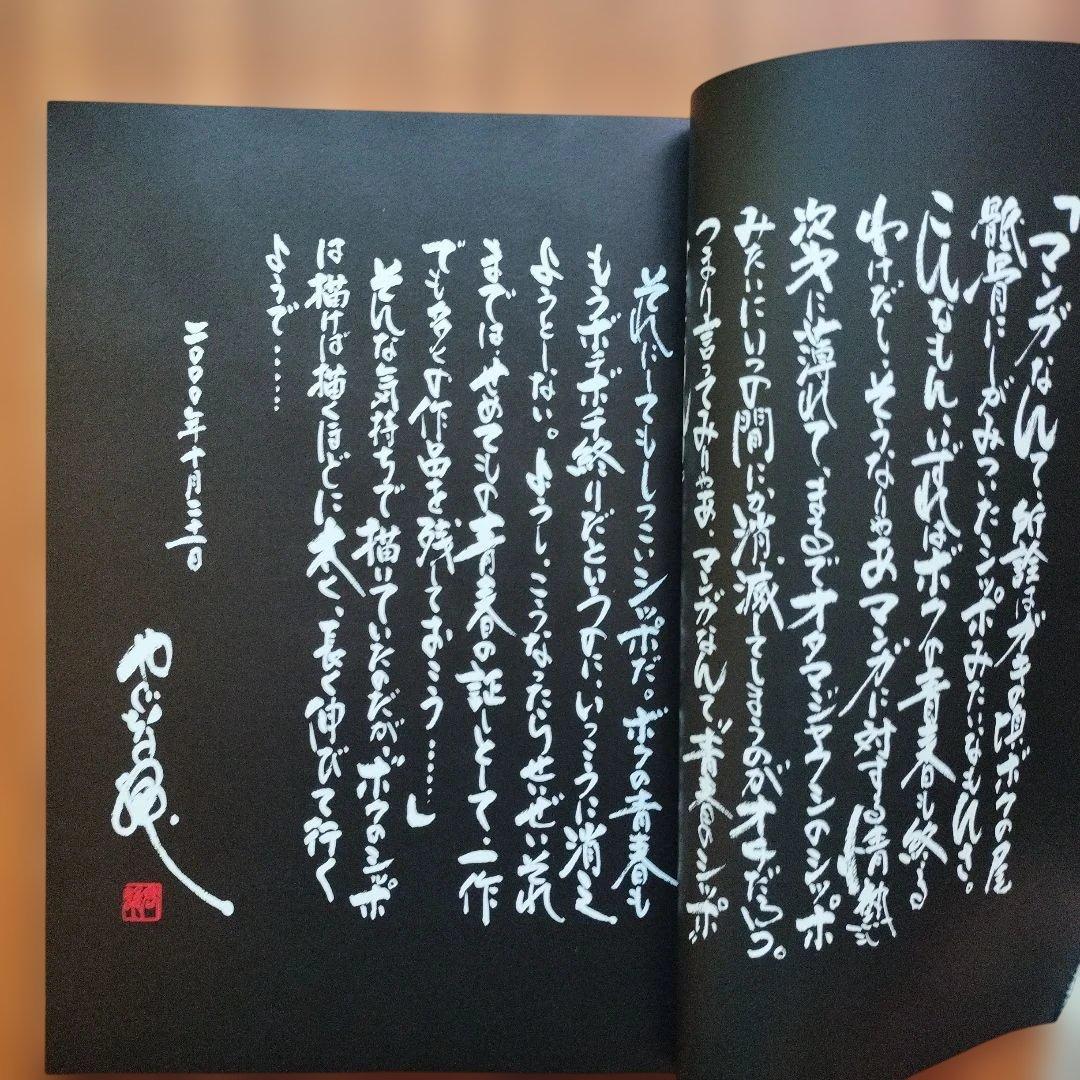 「マンガなんて、所詮はガキの頃、ボクの尾
骶骨にしがみついたシッポみたいなもんさ。
こんなもん、いずればボクの青春も終る
わけだし、そうなりゃあマンガに対する情熱も
次第に薄れて、まるでオタマジャクシのシッポ
みたいにいつの間にか消滅してしまうのがオチだろう。
つまり言ってみりゃあ、マンガなんて“青春のシッポ
それにしてもしつこいシッポだ。ボクの青春も
もうボチボチ終りだというのにいっこうに消え
ようとしない。ようし、こうなったらせいぜいそれ
までは、せめてもの青春の証しとして、一作
でも多くの作品を残しておこう……」
そんな気持ちで描いていたのだが、ボクのシッポ
は描けば描くほどに太く、長く伸びて行く
ようで……
二〇〇〇年十月二十一日